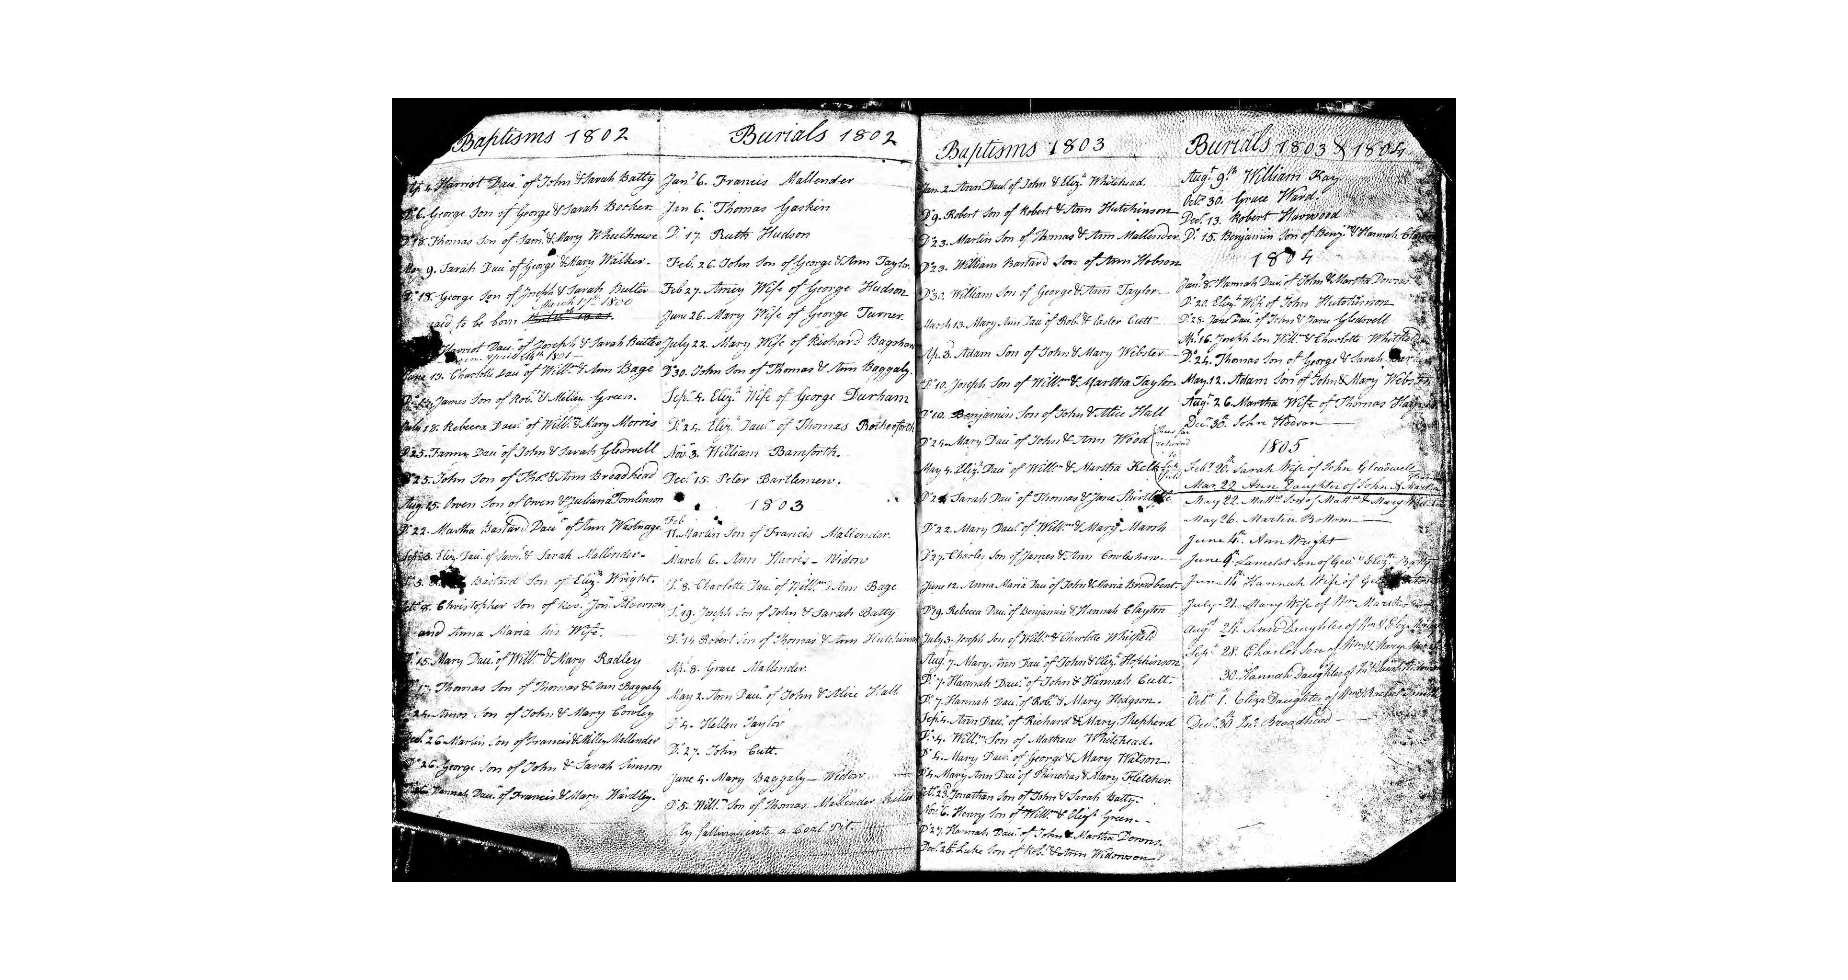 Baptisms 1802
Harriot Dau.r of John & Sarah Batty
D.o 6. George Son of George & Sarah Booker
D.o 18. Thomas Son of Sam.l & Mary Wheelhouse
May 9. Sarah Dau.r of George & Mary Walker.
D.o 18. George Son of Joseph & Sarah Butler
March 17th 1800
said to be born
Harriot Dau.r of Joseph & Sarah Butler
born April 1801
June 13. Charlotte Dau.r of Will.m & Ann Bage
James Son of Rob.t & Milley Green.
July 18. Rebecca Dau.r of Will.m & Mary Morris
D.o 25. Fanny Dau.r of John & Sarah Gledwell
D.o 25. John Son of Tho.s & Ann Broadhead
Aug. 15. Owen Son of Owen & Juliana Tomlinson
D.o 22. Martha Bastard Dau.r of Ann Westnage
Eliz. Dau.r of Sam.l & Sarah Mallender
D.o 5. Bastard Son of Eliz.h Wright.
Christopher Son of Rev. Jon. Alverson
and Anna Maria his Wife.
D.o 15. Mary Dau.r of Will.m & Mary Radley
D.o 17. Thomas Son of Thomas & Ann Baggaly
D.o 24. Amos Son of John & Mary Cowley
Dec.r 26 Martin Son of Francis & Milley Mallender
D.o 26. George Son of John & Sarah Simson
Hannah Dau.r of Francis & Mary Wardley.
Burials 1802
Jan.y 6. Francis Mallender
Jan 6. Thomas Gaskin
D.o 17. Ruth Hudson
Feb. 26. John Son of George & Ann Taylor
Feb 27. Amey Wife of George Hudson
June 26. Mary Wife of George Turner.
July 22. Mary Wife of Richard Bagshaw
D.o 30. John Son of Thomas & Ann Baggaly.
Sep.t 4. Eliz.h Wife of George Durham
D.o 24. Eliz.h Dau.r of Thomas Rotherforth
Nov.r 3. William Bamforth.
Dec.r 15. Peter Bartlemew.
1803
Feb
11. Martin Son of Francis Mallender.
March 6. Ann Harris - Widow
D.o 8. Charlotte Dau.r of Will.m & Ann Bage
D.o 19. Joseph Son of John & Sarah Batty
D.o 14. Robert Son of Thomas & Ann Hutchinson
Ap.l 8. Grace Mallender.
May 2. Ann Dau.r of John & Alice Hall
D.o 4. Hellen Taylor
D.o 27. John Cutt.
June 4. Mary Baggaly - Widow
D.o 5. Will.m Son of Thomas Mallender killed
by falling into a Coal Pit.
Baptisms 1803
Jan. 2. Ann Dau.r of John & Eliz.h Whitehead.
D.o 9. Robert Son of Robert & Ann Hutchinson
D.o 23. Martin Son of Thomas & Ann Mallender
D.o 23. William Bastard Son of Ann Hobson
D.o 30. William Son of George & Ann Taylor
March 13. Mary Ann Dau.r of Rob.t & Easter Cutt
Ap. 3. Adam Son of John & Mary Webster
D.o 10. Joseph Son of Will.m & Martha Taylor.
D.o 10. Benjamin Son of John & Alice Hall
D.o 24. Mary Dau.r of John & Ann Wood
May 4. Eliz.h Dau.r of Will.m & Martha Kelk
Sarah Dau.r of Thomas & Jane Shirtliffe
D.o 22. Mary Dau.r of Will.m & Mary Marsh
D.o 27. Charles Son of James & Ann Cowlishaw
June 12. Anna Maria Dau.r of John & Maria Broadbent
D.o 19. Rebecca Dau.r of Benjamin & Hannah Clayton
July 3. Joseph Son of Will.m & Charlotte Whitfield
Aug.t 7. Mary Ann Dau.r of John & Eliz.h Hopkinson
D.o 7. Hannah Dau.r of John & Hannah Cutt.
D.o 7. Hannah Dau.r of Rob.t & Mary Hodgson.
Sep.t 4. Ann Dau.r of Richard & Mary Shepherd
D.o 4. Will.m Son of Mathew Whitehead.
D.o 4. Mary Dau.r of George & Mary Watson
D.o 4. Mary Ann Dau.r of Phinehas & Mary Fletcher
Oct. 23. Jonathan Son of John & Sarah Batty.
Nov. 6. Henry Son of Will.m & Green.
D.o 27. Hannah Dau.r of John & Martha Downs.
Dec. 25. Luke Son of Rob.t & Ann Widowson
Burials 1803 & 1804
Aug.t 9.th William Kay
Oct.r 30. Grace Ward.
Dec.r 13. Robert Harwood
D.o 15. Benjamin Son of Benj.n & Hannah Clayton
1804
Jan.y 8. Hannah Dau.r of John & Martha Downs
D.o 20. Eliz.h Wife of John Hutchinson
D.o 28. Jane Dau.r of John & Jane Gledwell
Ap. 16. Joseph Son Will.m & Charlotte
D.o 24. Thomas Son of George & Sarah
May. 12. Adam Son of John & Mary Webster
Aug.t 26. Martha Wife of Thomas
Dec.r 30. John Hobson
1805
Feb.y Sarah Wife of John Gleadwell
Mar. 22 Ann Daughter of John &
May 22. Matt.w Son of Matt.w & Mary
May 26. Martin Bottom
June 4.th Ann Wright
June 9.th Lamelot Son of Geo. & Eliz.th
June 16.th Hannah Wife of
July 21. Mary Wife of W.m Marsh
Aug.t Ann Daughter of W.m & Eliz.
Sep.t 28. Charles Son of W.m & Mary
30. Hannah Daughter of
Oct.r 1. Eliza Daughter of W.m &
Dec.r 30 Jn.o Broadhead